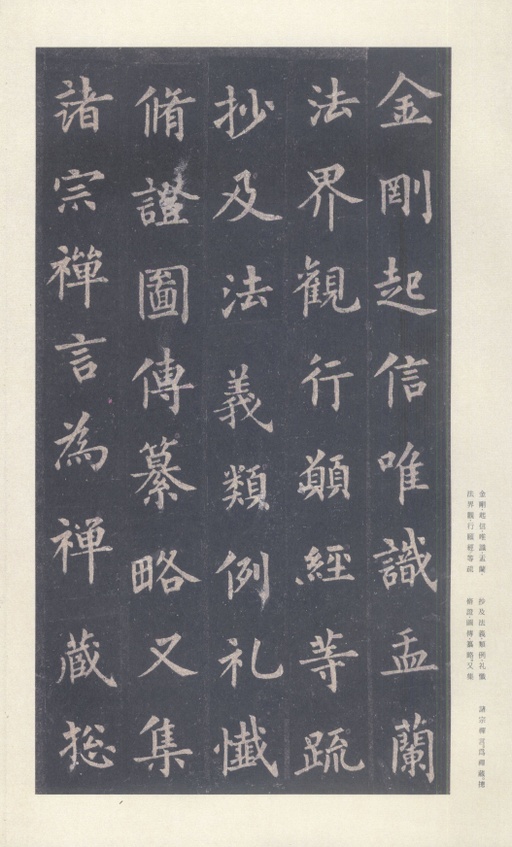 金剛起信唯識盂蘭
法界觀行願經等疏
抄及法義類例礼懺
脩證圖傳纂略又集
諸宗禪言為禪藏捴
金剛起信唯識盂蘭
法界觀行願經等疏
抄及法義類例礼懺
脩證圖傳纂略又集
諸宗禪言為禪藏捴